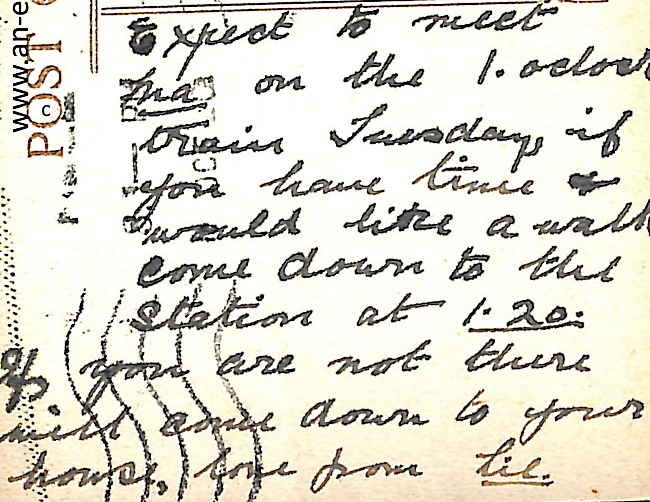 www.an-e
POST C
Expect to meet
ma on the 1. oclock
train Tuesday, if
you have time &
would like a walk
come down to the
station at 1.20.
If you are not there
will come down to your
house, love from Lil.